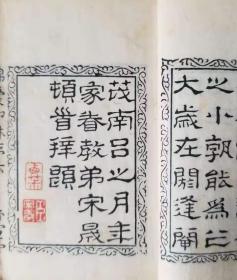 之小郭能為
大歲在閼逢閹
茂南呂之月年
家眷教弟宋晟
頓首拜題